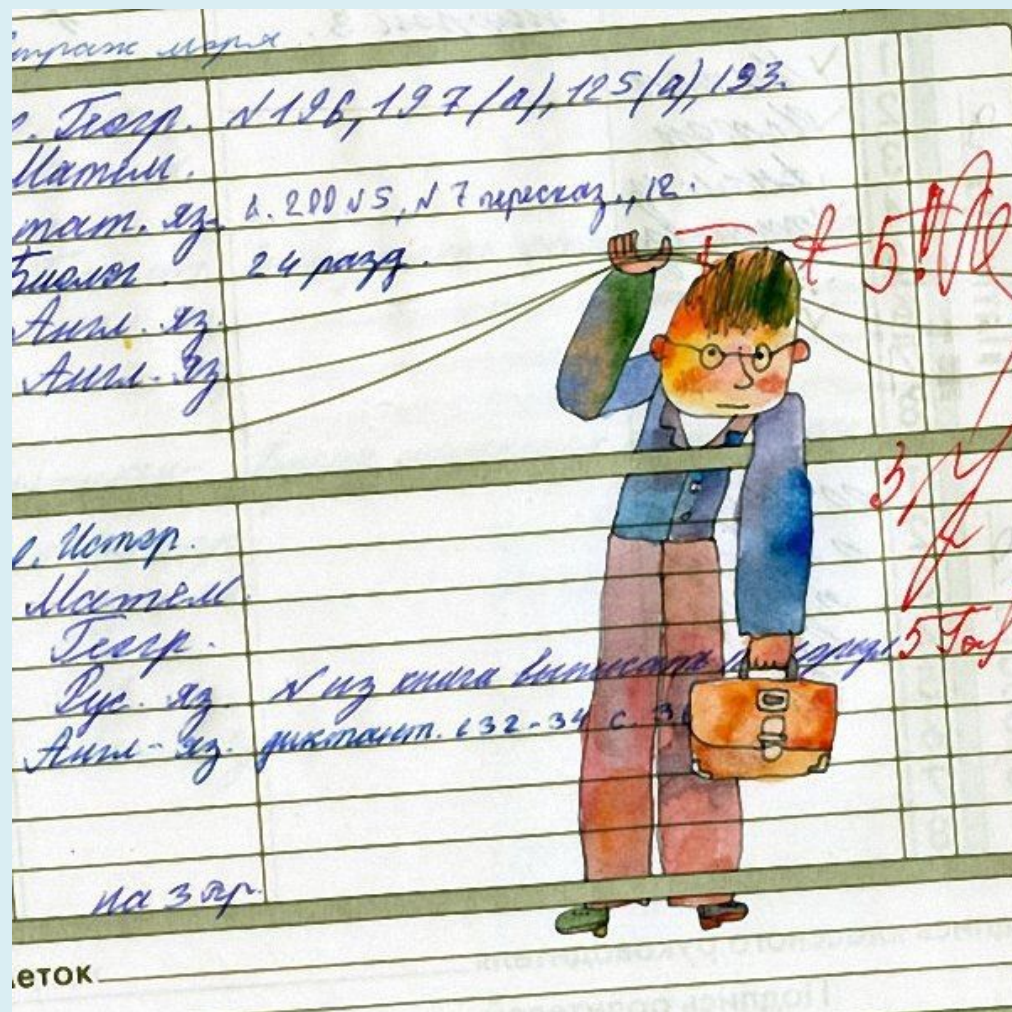 страж моря
Геогр. N 196, 197 (а), 125 (а), 193.
Матем.
тат. яз. с. 200 N5, N7 пересказ., 12.
Биолог. 24 разд.
Англ. яз.
Англ. яз
5!
3,
Истор.
Матем.
Геогр.
Рус. яз N из книга выписать 5
Англ. яз. диктант. с 32-34 с. 3
на 3 пр.
еток